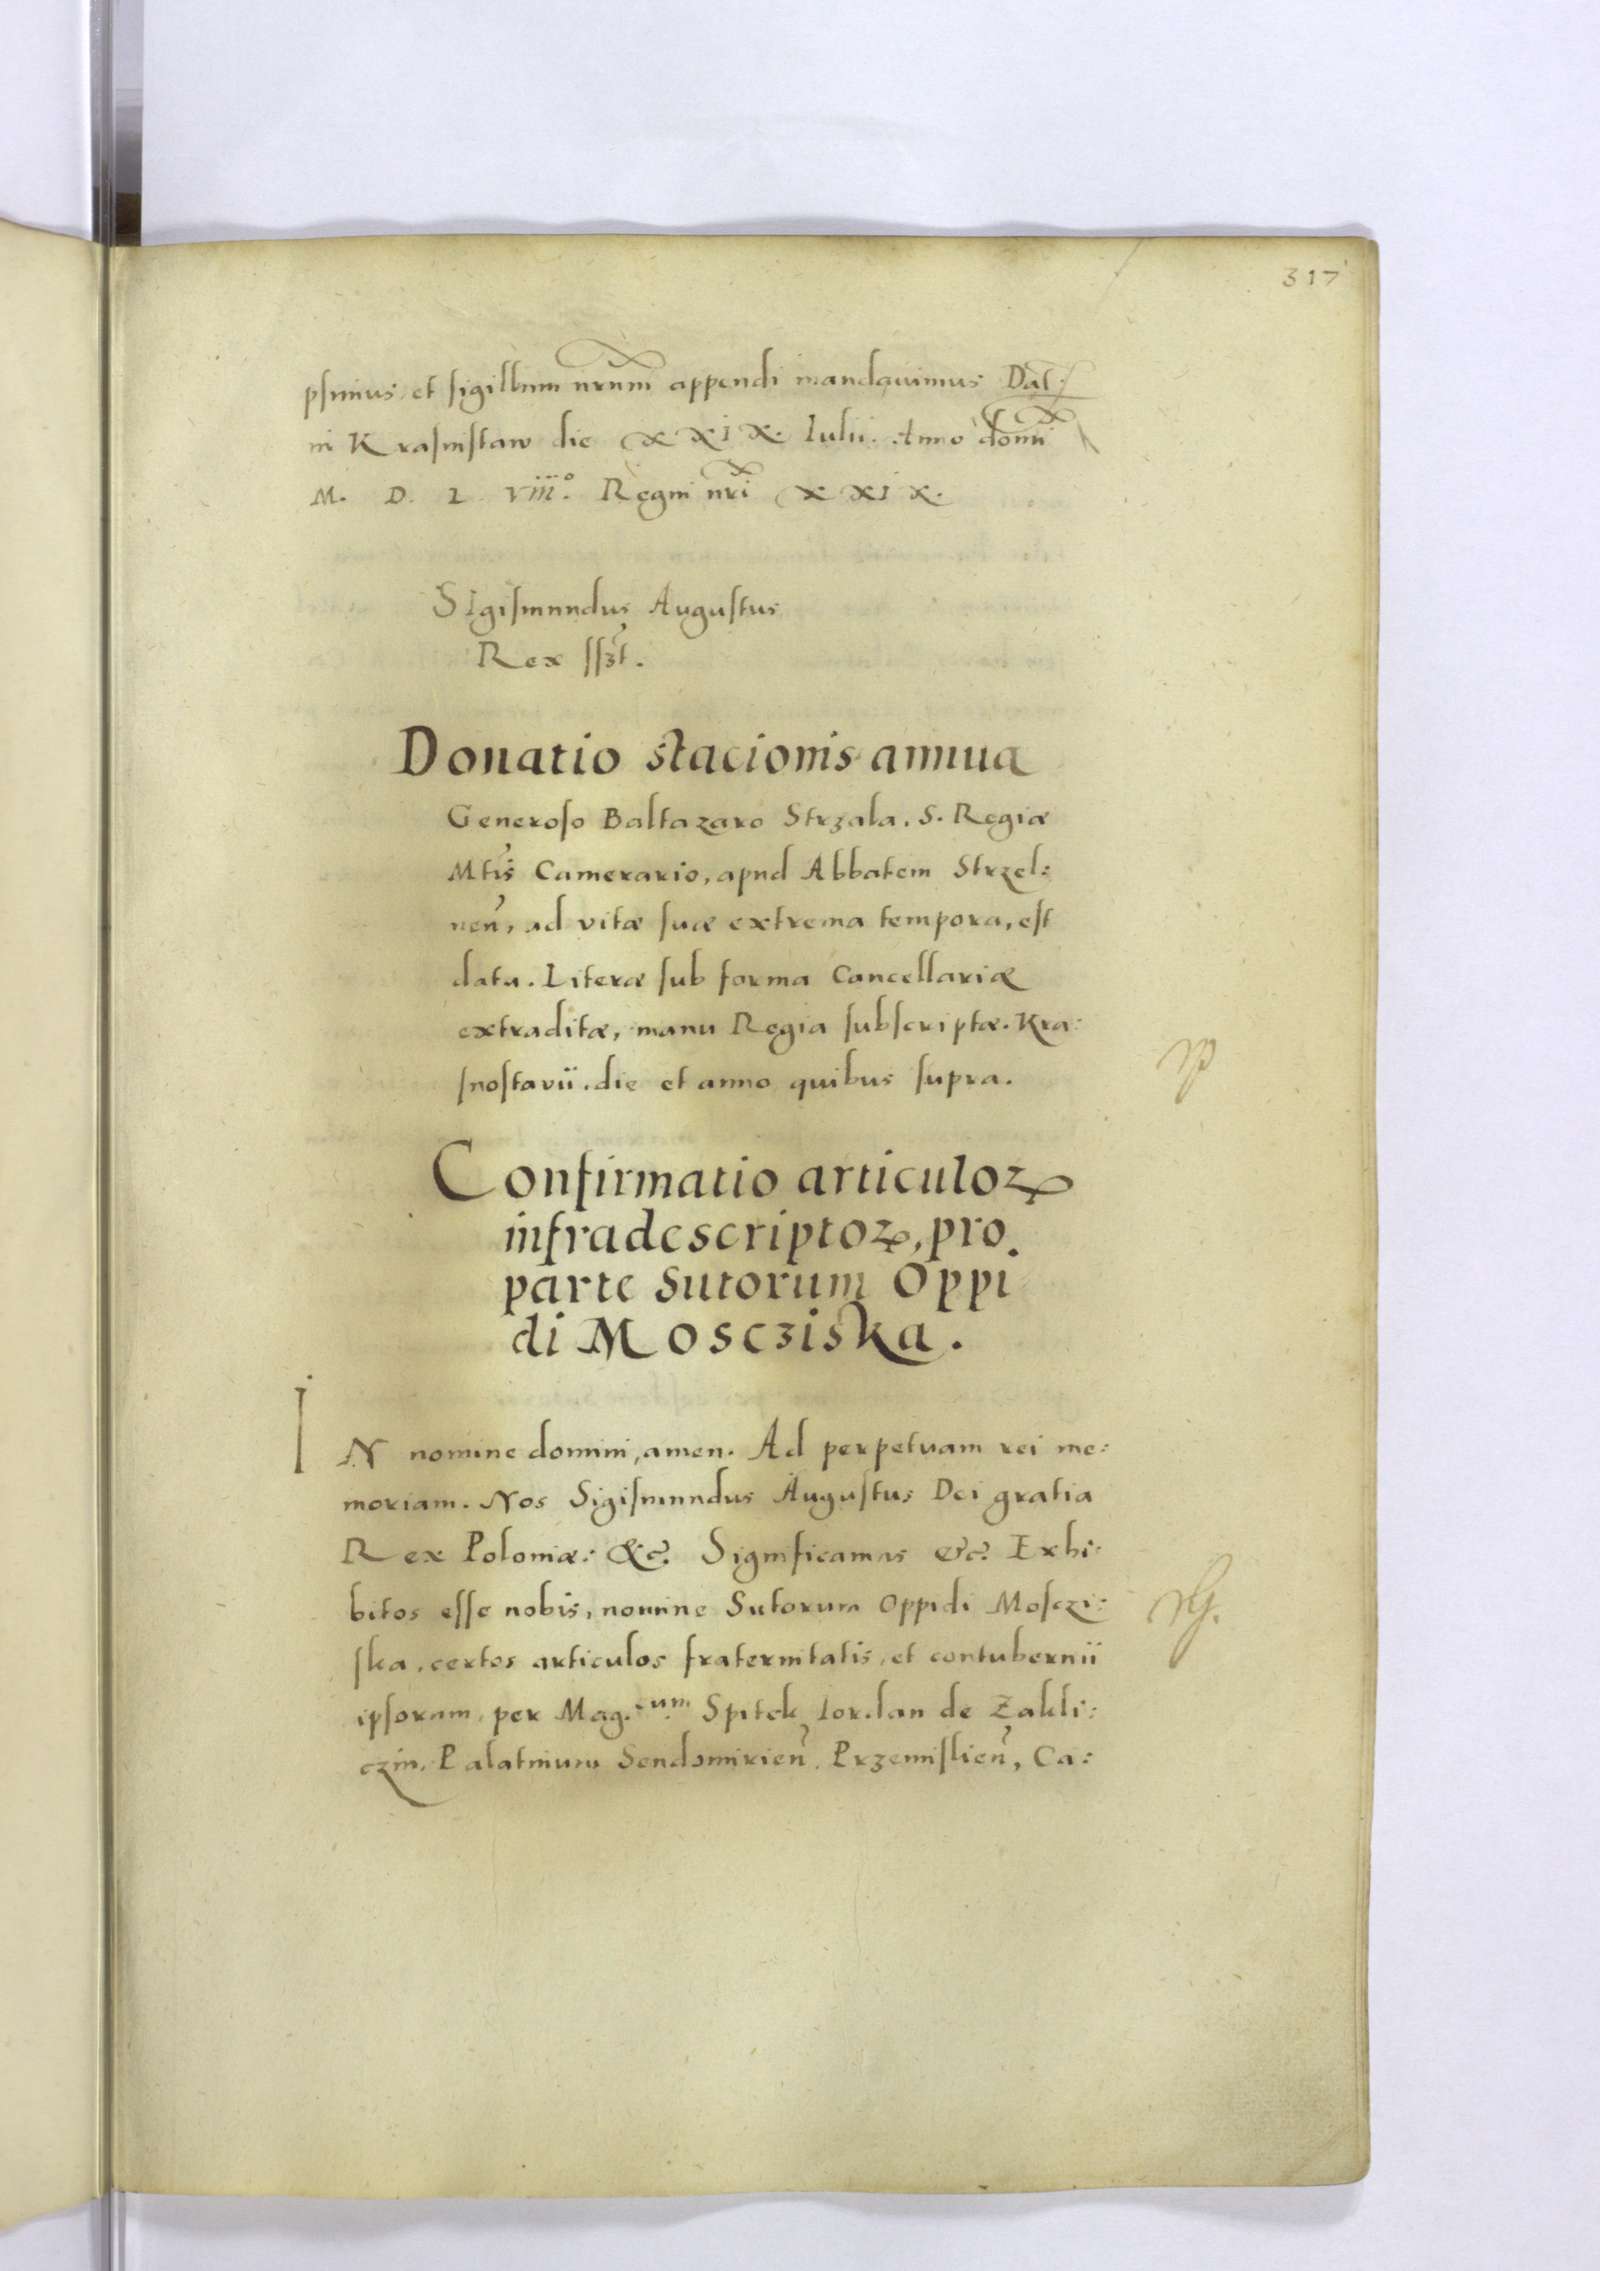 317
psimus, et sigillum nrum appendi mandavimus Dat:
in Krasnistaw die XXIX. Iulii. Anno domi
M. D. L VIII°. Regni nri XXIX.
Sigismundus Augustus
Rex sszt.
Donatio stacionis annua
Generoso Baltazaro Strzala. S. Regiæ
Mtis Camerario, apud Abbatem Strzel:
nen, ad vitæ suæ extrema tempora, est
data. Literæ sub forma Cancellariæ
extraditæ, manu Regia subscriptæ. Kra:
snostavii. die et anno quibus supra.
Confirmatio articuloꝝ
infradescriptoꝝ, pro
parte Sutorum Oppi
di Moscziska.
IN nomine domini, amen. Ad perpetuam rei me:
moriam. Nos Sigismundus Augustus Dei gratia
Rex Poloniæ: &c. Significamus &c. Exhi:
bitos esse nobis, nomine Sutorum Oppidi Mosczi:
ska, certos articulos fraternitatis, et contubernii
ipsorum, per Mag.cum Spitek Iordan de Zakli:
czin, Palatinum Sendomirien, Przemislien, Ca: